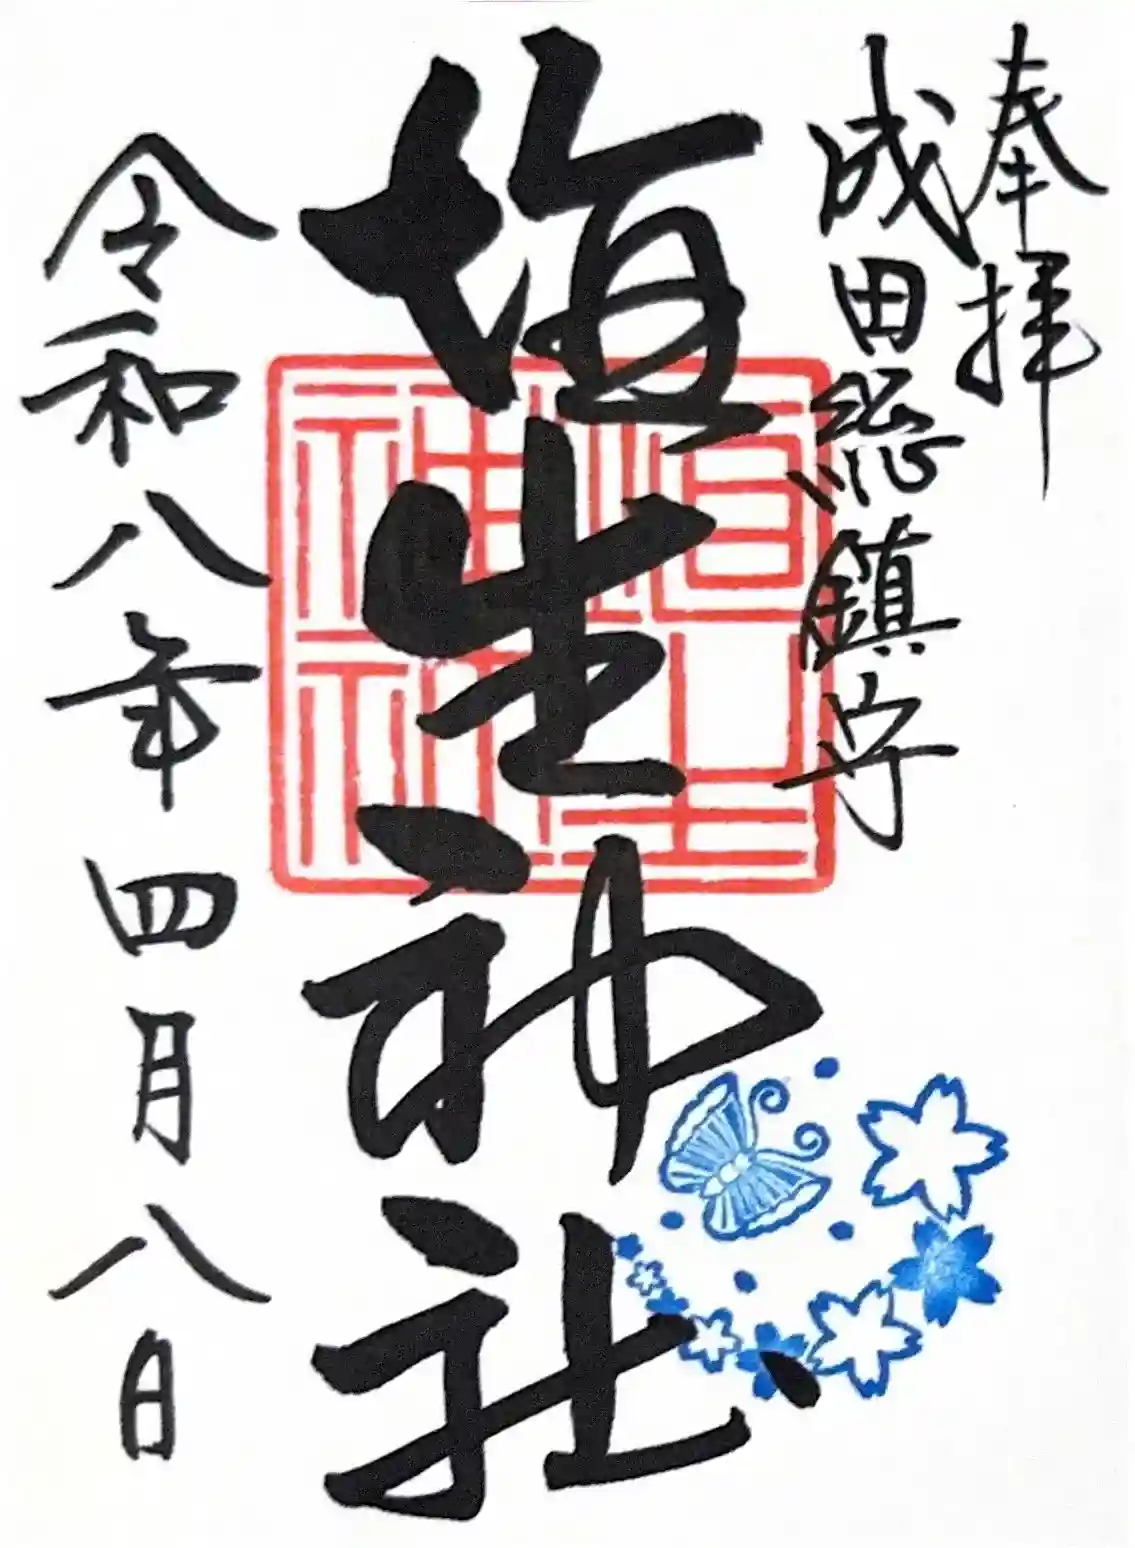 奉拝
成田総鎮守
埴生神社
埴生神社
令和八年四月八日